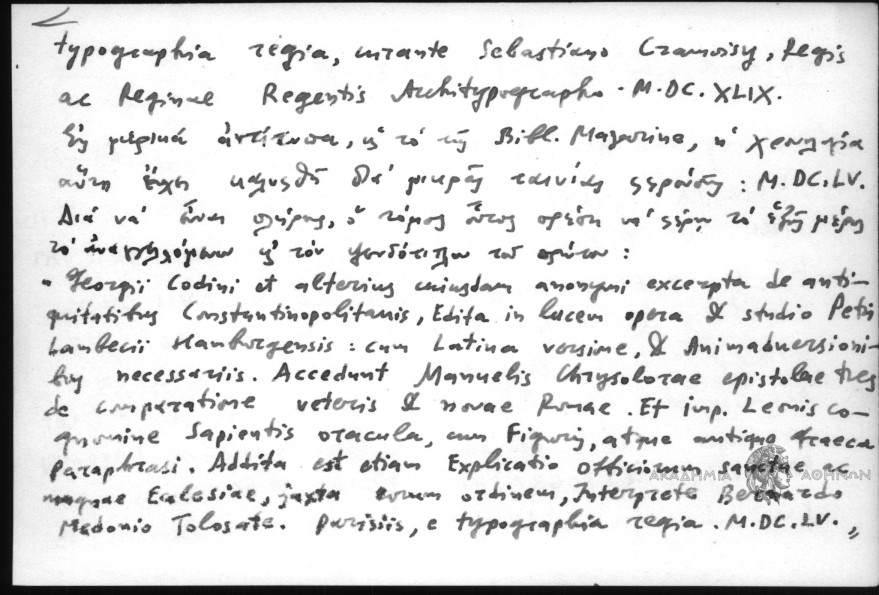 typographia regia, curante Sebastiano Cramoisy, Regis
ac Reginae Regentis Architypographo . M.DC.XLIX.
Εἰς μερικὰ ἀντίτυπα, εἰς τὸ τῆς Bibl. Mazarine, ἡ χρονολογία
αὕτη ἔχει καλυφθῆ διὰ μικρᾶς ταινίας φερούσης : M.DC.LV.
Διὰ νὰ εἶναι πλήρης, ὁ τόμος οὗτος πρέπει νὰ φέρῃ τὰ ἑξῆς μέρη
τὰ ἀναγγελλόμενα εἰς τὸν ψευδότιτλον τοῦ πρώτου :
" Georgii Codini et alterius cuiusdam anonymi excerpta de anti-
quitatibus Constantinopolitanis, Edita in lucem opera & studio Petri
Lambecii Hamburgensis : cum Latina versione, & Animaduersioni-
bus necessariis. Accedunt Manuelis Chrysolorae epistolae tres
de comparatione veteris & novae Romae. Et imp. Leonis co-
gnomine Sapientis oracula, cum Figuris, atque antiquo Graeca
paraphrasi. Addita est etiam Explicatio officiorum sanctae ac
magnae Ecclesiae, juxta eorum ordinem, Interprete Bernardo
Medonio Tolosate. Parisiis, e typographia regia . M.DC.LV. „
ΑΚΑΔΗΜΙΑ ΑΘΗΝΩΝ